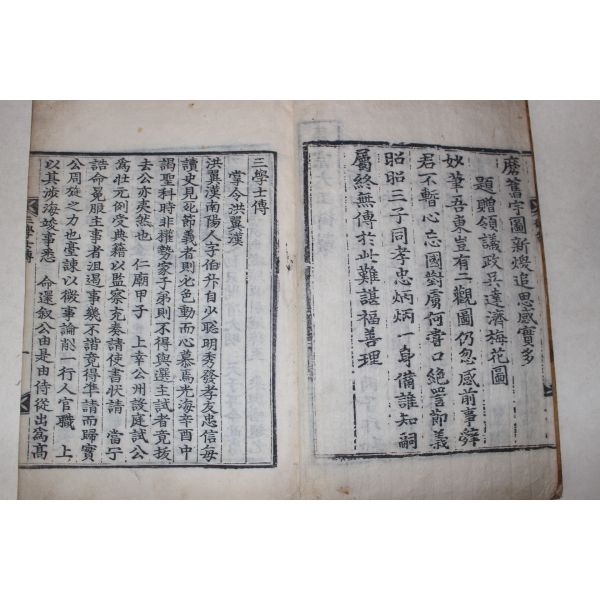 磨舊字圖新煥追思感實多
題贈領議政吳達濟梅花圖
妙筆吾東豈有一觀圖仍忽感前事辭
君不暫心忘國對虜何嘗口絶詈節義
昭昭三子同孝忠炳炳一身備誰知嗣
屬終無傳於此難諶福善理
三學士傳
掌令洪翼漢
洪翼漢南陽人字伯升自少聰明秀發孝友忠信每
讀史見死節義者則必色動而心慕焉光海辛酉中
謁聖科時非權勢家子弟則不得與選主試者竟拔
去公亦夷然也 仁廟甲子 上幸公州設庭試公
爲壯元例受典籍以監察克奏請使書狀請 當宁
誥命冕服主事者沮遏事幾不諧竟得準請而歸實
公周旋之力也臺諫以微事論削一行人官職 上
以其涉海竣事悉 命還敘公由是由侍從出宰高
三學士傳
一